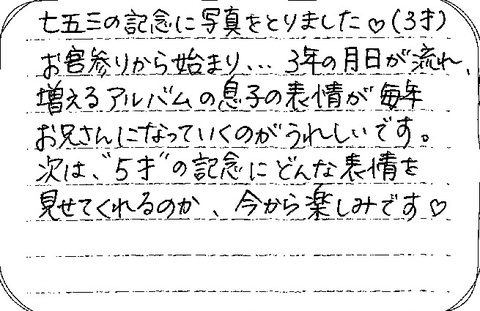 七五三の記念に写真をとりました♡(3才)
お宮参りから始まり、、、3年の月日が流れ、
増えるアルバムの息子の表情が毎年
お兄さんになっていくのがうれしいです。
次は、"5才"の記念にどんな表情を
見せてくれるのか、今から楽しみです♡